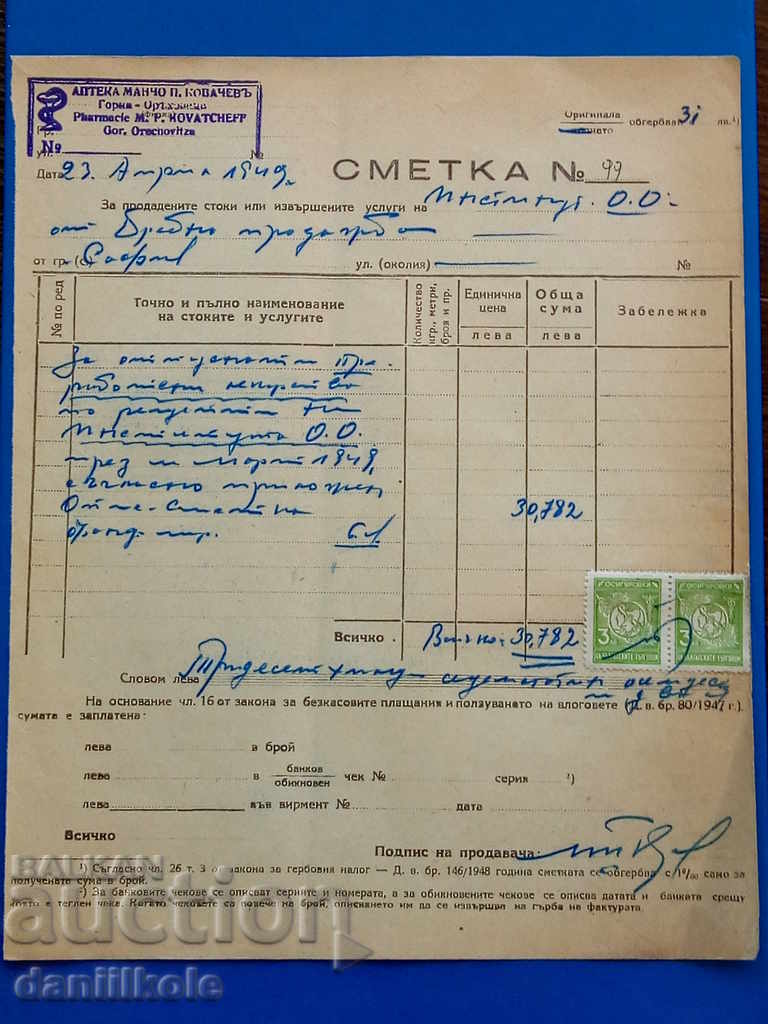 АПТЕКА МАНЧО П. КОВАЧЕВЪ
Горна - Орѣховица
Pharmacie M. P. KOVATCHEFF
Gor. Orechovitza
№
Гр.
ул. №
Оригинала обгербван 31 лв.¹)
Дата 23. Април 1949
СМЕТКА № 99
За продадените стоки или извършените услуги на Институт. О.О.
от гр. (с) София ул. (околия) №
№ по ред
Точно и пълно наименование на стоките и услугите
Количество кгр., метри, броя и пр.
Единична цена
лева
Обща сума
лева
Забележка
За отпуснати
по рецепти на
Института О.О.
през м. Март 1949
съгласно приложен
30,782
Всичко Всичко 30,782
3 3
Словом лева Тридесет хиляди седемстотин осемдесет и два
На основание чл. 16 от закона за безкасовите плащания и ползуването на влоговете (Д. в. бр. 80/1947 г.)
сумата е заплатена:
лева в брой
лева в банков обикновен чек № серия ²)
лева във вирмент № дата
Всичко
Подпис на продавача:
¹) Съгласно чл. 26 т. 3 от закона за гербовия налог — Д. в. бр. 146/1948 година сметката се обгербва с 1⁰/₀₀ само за
получената сума в брой.
²) За банковите чекове се описват сериите и номерата, а за обикновените чекове се описва датата и банката срещу
която е теглен чека. Когато чековете са повече на брой, описването им да се извършва на гърба на фактурата.
BALKAN
auction
daniilkole